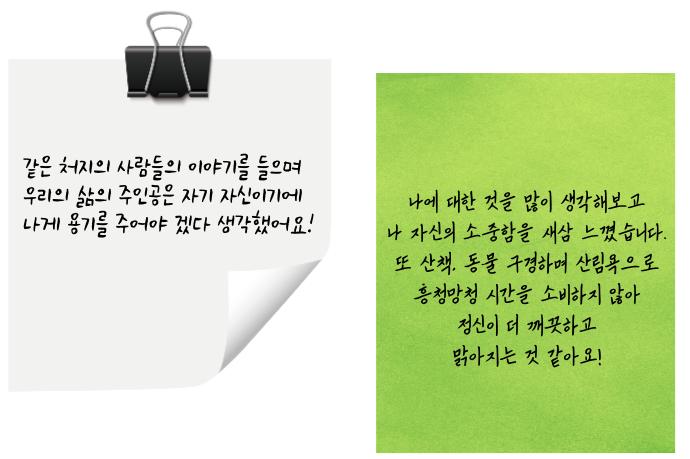 같은 처지의 사람들의 이야기를 들으며
우리의 삶의 주인공은 자기 자신이기에
나게 용기를 주어야 겠다 생각했어요!
나에 대한 것을 많이 생각해보고
나 자신의 소중함을 새삼 느꼈습니다.
또 산책, 동물 구경하며 산림욕으로
흥청망청 시간을 소비하지 않아
정신이 더 깨끗하고
맑아지는 것 같아요!